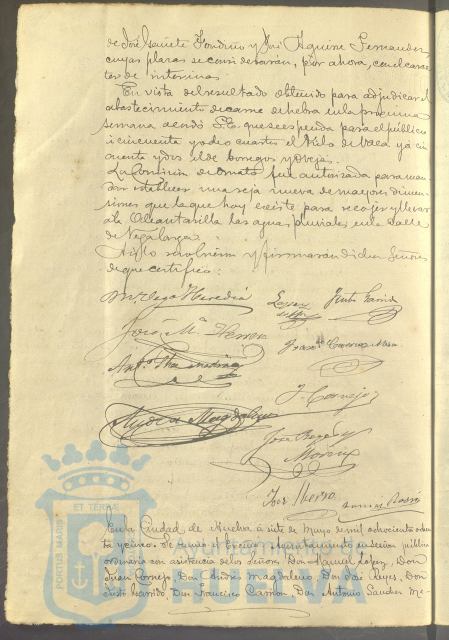 de José Gañete Fondino y José Aguirre Fernandez
cuyas plazas se consideraran, por ahora, con el carac-
ter de interinas
En vista del resultado obtenido para adjudicar el
abastecimiento de carne de hebra en la proxima
semana acordó S.E. que se espenda para el publico
á cincuenta y dos cuartos el Kilo de Vaca y á cin
cuenta y dos el de borregos y ovejas.
La Comision de Ornato fue autorizada para man
dar establecer una reja nueva de mayores dimen
siones que la que hoy existe para recojer y llevar
á la Alcantarilla las aguas pluviales en la calle
de Vega larga.
Asi lo resolvieron y firmaran dichos Señores
de que certifico:
Heredia
Lopez
Justo Garrido
José Mª Herrera
Franco
J. Cornejo
Andres Magdaleno
José Reyes y
José Ibarra
PORTUS MARIS
ET TERRAE
Ayuntamiento de
HUELVA
En la Ciudad de Huelva á siete de Mayo de mil ochocientos ochen
ta y cinco. Se reunió el Excmo Ayuntamiento en sesion publica
ordinaria con asistencia de los Señores Don Manuel Lopez, Don
Juan Cornejo, Don Andres Magdaleno, Don José Reyes, Don
Justo Garrido, Don Francisco Carrion, Don Antonio Sanchez Me-